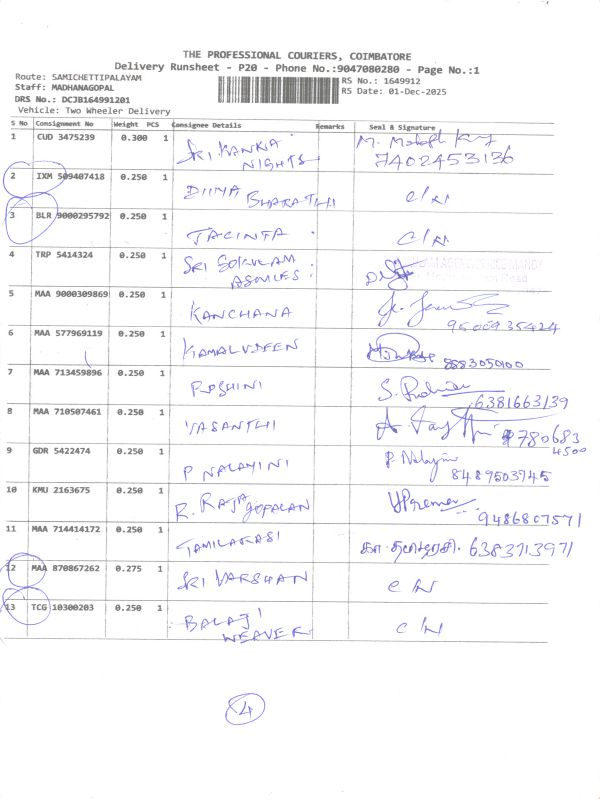 THE PROFESSIONAL COURIERS, COIMBATORE
Delivery Runsheet - P20 - Phone No.:9047080280 - Page No.:1
Route: SAMICHETTIPALAYAM RS No.: 1649912
Staff: MADHANAGOPAL RS Date: 01-Dec-2025
DRS No.: DCJB164991201
Vehicle: Two Wheeler Delivery
S No Consignment No Weight PCS Consignee Details Remarks Seal & Signature
1 CUD 3475239 0.300 1 SRI KANNIA M.
NIGHTS 7402453136
2 IXM 509407418 0.250 1 DIVYA BHARATHI
3 BLR 9000295792 0.250 1 JACINTA
4 TRP 5414324 0.250 1 SRI GOKULAM
5 MAA 9000309869 0.250 1 KANCHANA
9500935424
6 MAA 577969119 0.250 1 8883050100
7 MAA 713459896 0.250 1 ROSHINI S.
6381663139
8 MAA 710507461 0.250 1 VASANTHI
4500
9 GDR 5422474 0.250 1 P NALAYINI P. Nalayini
8489503945
10 KMU 2163675 0.250 1 R. RAJA
GOPALAN 9486807571
11 MAA 714414172 0.250 1 TAMILARASI 6383713971
12 MAA 870867262 0.275 1 SRI VARSHAN
13 TCG 10300203 0.250 1 BALAJI
WEAVER
4